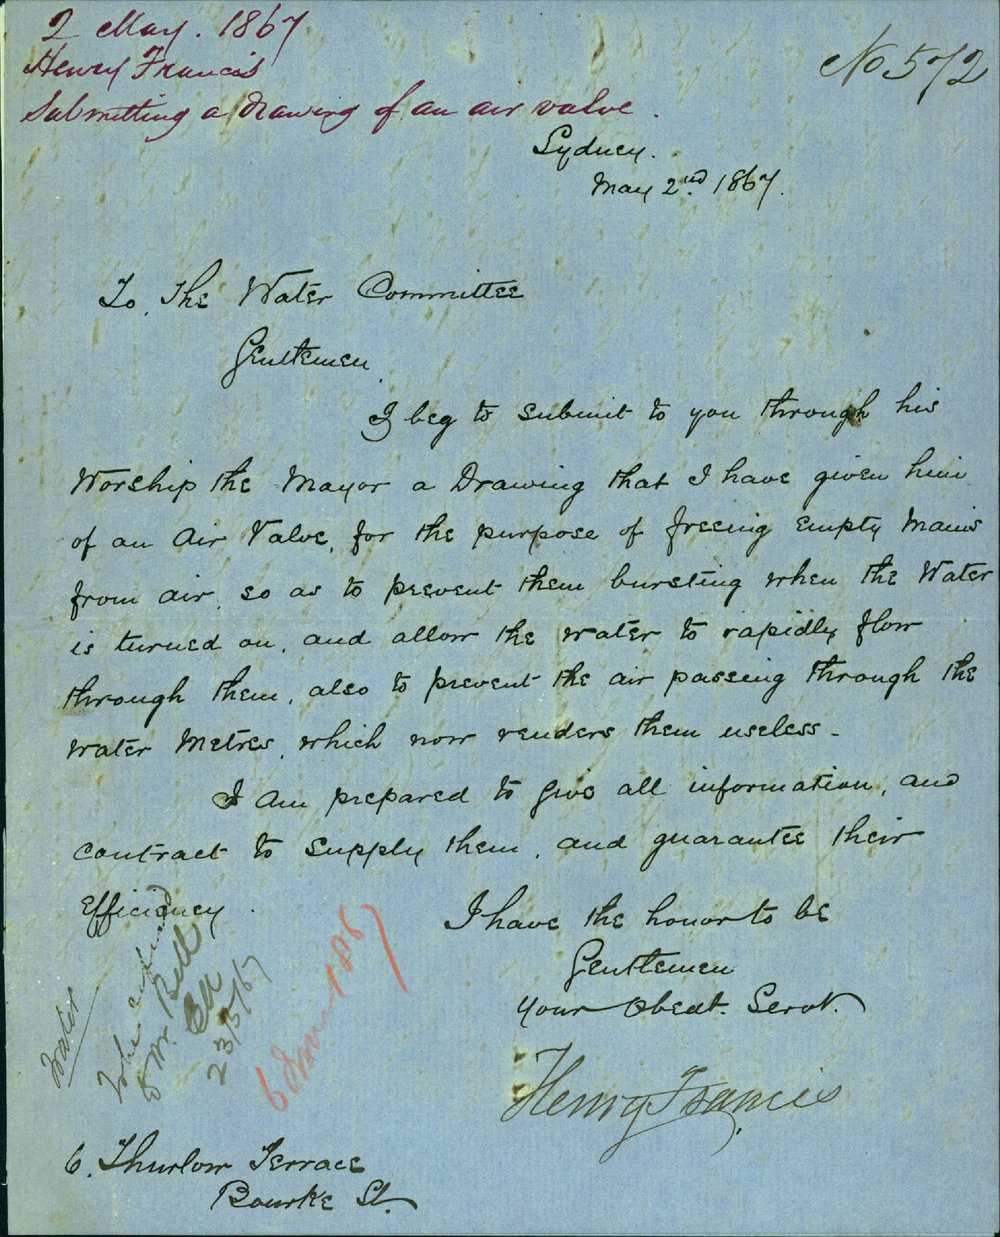 2 May. 1867
Henry Francis
Submitting a drawing of an air valve.
No 572
Sydney.
May 2nd 1867.
To, The Water Committee
Gentlemen,
I beg to submit to you through his
Worship the Mayor a Drawing that I have given him
of an Air Valve, for the purpose of freeing Empty Mains
from air, so as to prevent them bursting when the Water
is turned on, and allow the water to rapidly flow
through them, also to prevent the air passing through the
Water Metres, which now renders them useless -
I am prepared to give all information, and
contract to supply them, and guarantee their
Efficiency.
I have the honor to be
Gentlemen
Your Obedt. Servt.
Henry Francis
Water
To be referred
to Mr. Bell
23/5/67
6 June 1867
6. Thurlow Terrace
Bourke St.